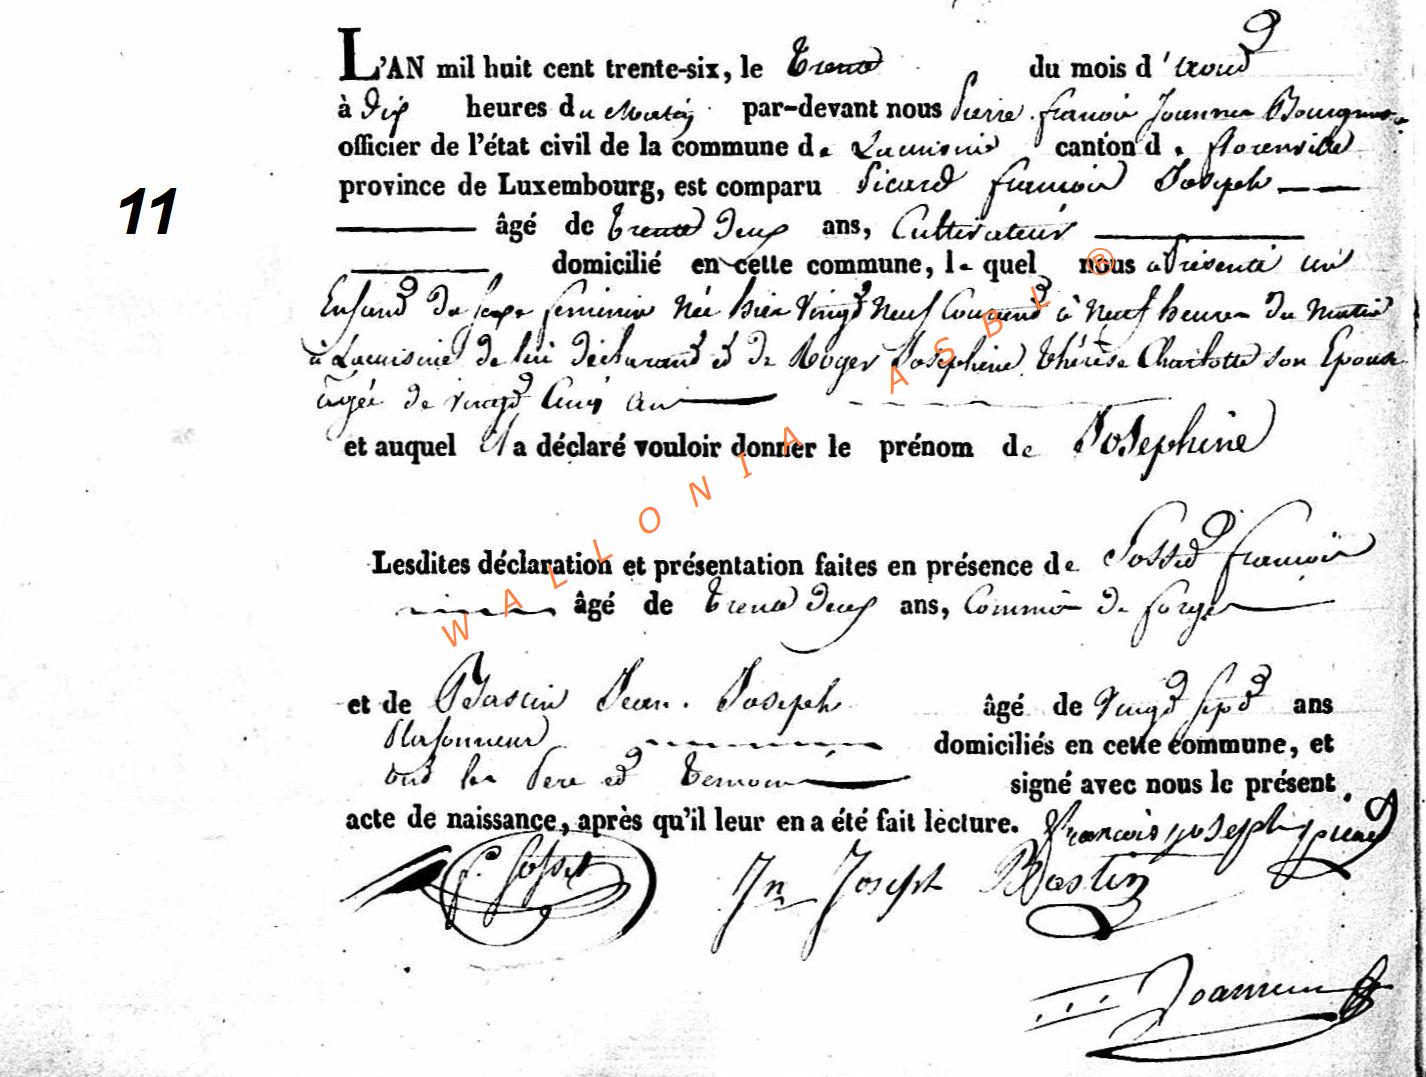 L'AN mil huit cent trente-six, le Trente du mois d'aoud
à Dix heures du Matin par-devant nous Pierre françois Joannes Bourgmes
officier de l'état civil de la commune de Lacuisine canton de florenville
province de Luxembourg, est comparu Picard françois Joseph
âgé de Trente Deux ans, Cultivateur
domicilié en cette commune, lequel nous a Présenté un
Enfand du sexe feminin Née hier Vingd Neuf Courand à Neuf heures du Matin
à Lacuisine de lui déclarand ed de Roger Josephine Thérèse Charlotte son Epouse
agée de vingd Cinq ans
et auquel il a déclaré vouloir donner le prénom de Josephine
11
Lesdites déclaration et présentation faites en présence de Gossed françois
âgé de Trente Deux ans, Commis de forges
et de Bastin Jean Joseph âgé de Vingd Sepd ans
domiciliés en cette commune, et
ond les Pere ed Temoins signé avec nous le présent
acte de naissance, après qu'il leur en a été fait lecture. françois joseph picard
f. Gosset Jn Joseph Bastin
Joannes
WALLONIA ASBL ®